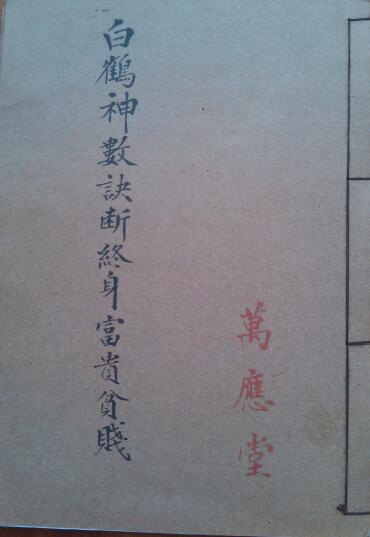 萬應堂
白鶴神數訣断終身富貴貧賤